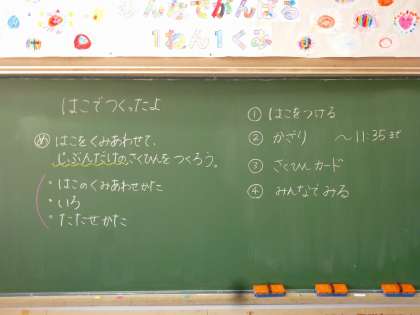 みんなでがんばる
1ねん1くみ
はこでつくったよ
め はこをくみあわせて、
じぶんだけのさくひんをつくろう。
・はこのくみあわせかた
・いろ
・たたせかた
① はこをつける
② かざり 〜11:35まで
③ さくひんカード
④ みんなでみる